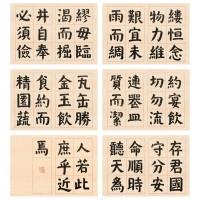 縷恒念
物力惟
艱宜未
雨而綢
繆毋臨
渴而掘
井自奉
必須儉
約宴飲
切勿流
連器皿
質而潔
瓦缶勝
金玉飲
食約而
精園蔬
存君國
守分安
命順時
聽天為
人若此
庶乎近
焉